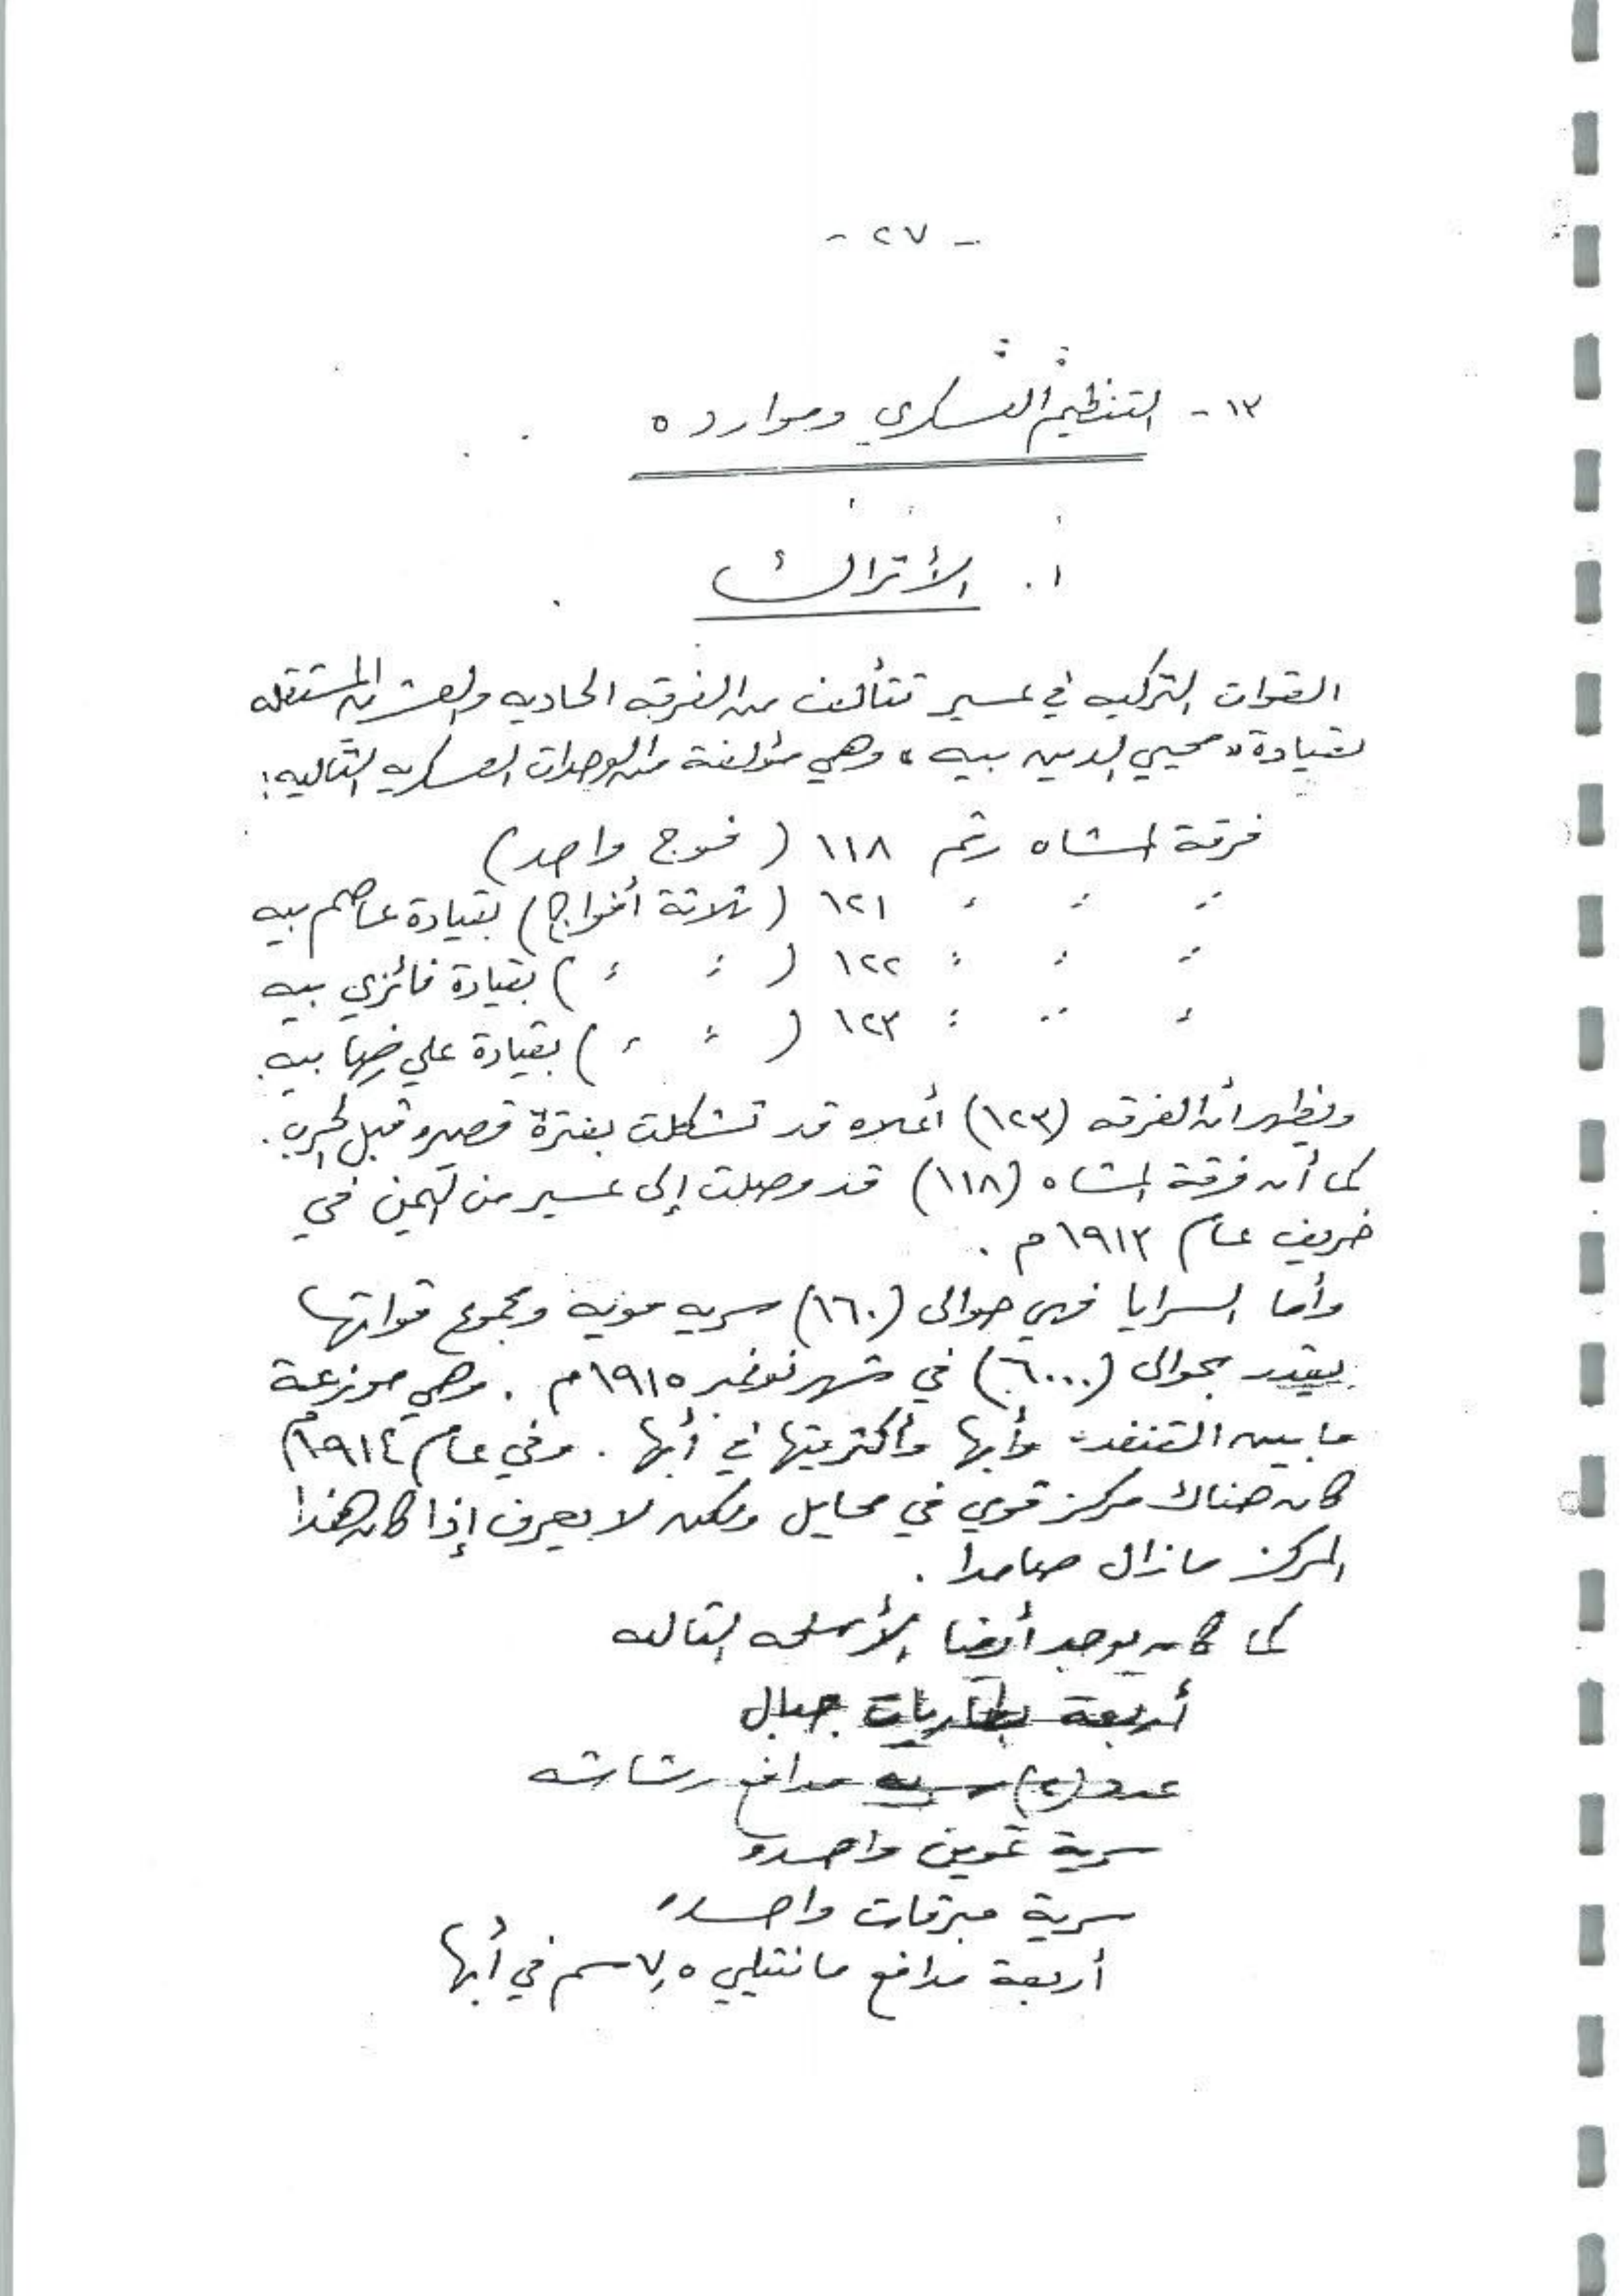 - ٢٧ -
١٣ - التنظيم العسكري وموارده
أ . الأتراك
القوات التركيه في عسير تتألف من الفرقه الحاديه والعشرين المستقله
بقيادة « محيي الدين بيه » وهي مؤلفة من الوحدات العسكريه التاليه :
فرقة المشاه رقم ١١٨ ( فوج واحد )
" " " ١٢١ ( ثلاثة أفواج ) بقيادة عاصم بيه
" " " ١٢٢ ( " " ) بقيادة فائزي بيه
" " " ١٢٣ ( " " ) بقيادة علي رضا بيه .
ويظهر أن الفرقه (١٢٣) أعلاه قد تشكلت بفترة قصيره قبل الحرب .
كما أن فرقة المشاه (١١٨) قد وصلت إلى عسير من اليمن في
خريف عام ١٩١٣ م .
وأما السرايا فهي حوالى (١٦٠) سريه ومجموع قواتها
يقدر بحوالى (٦٠٠٠) في شهر نوفمبر ١٩١٥ م . وهي موزعة
ما بين القنفده وأبها وأكثريتها في أبها . وفي عام ١٩١٤ م
كان هناك مركز قوي في محايل ولكن لا يعرف إذا كان هذا
المركز مازال صامدا .
كما كان يوجد أيضا الأسلحه التاليه
أربعة بطاريات جبال
عدد (٢) سريه مدافع رشاشه
سرية تموين واحده
سرية مبرقات واحده
أربعة مدافع مانتيلي ٧,٥ سم في أبها